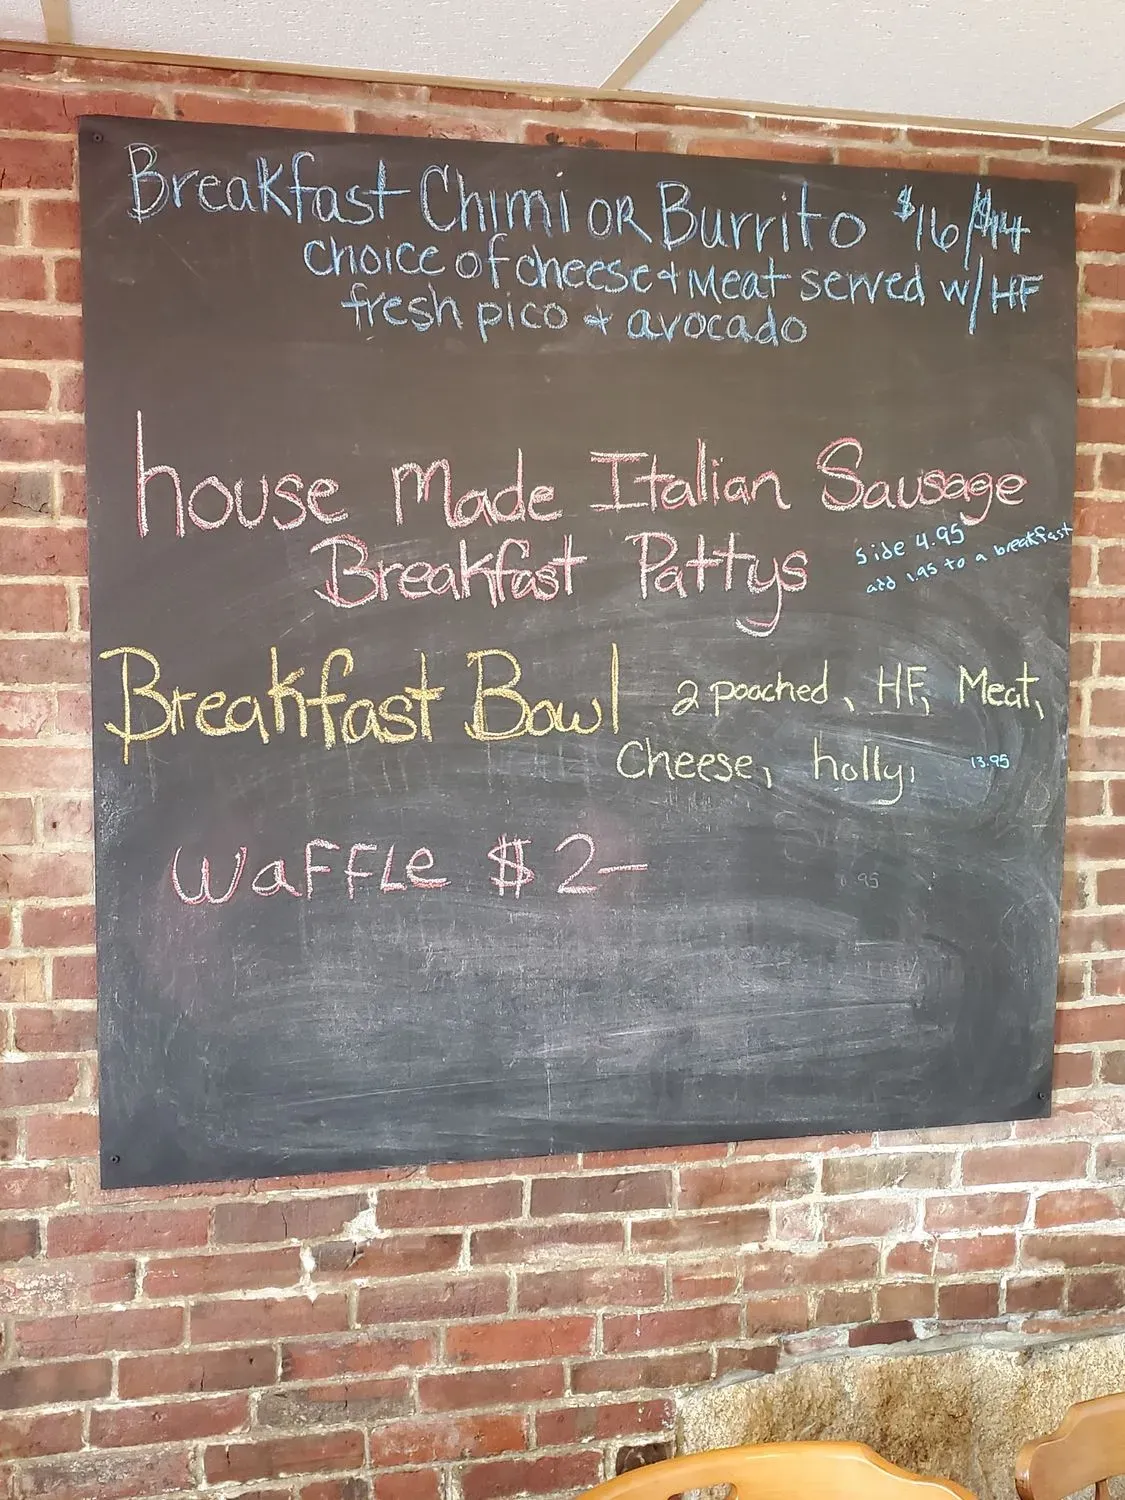 Breakfast Chimi OR Burrito $16/$14
choice of cheese + Meat served w/ HF
fresh pico + avocado
house Made Italian Sausage
Breakfast Pattys
side 4.95
add 1.95 to a breakfast
Breakfast Bowl
2 poached, HF, Meat,
Cheese, holly,
13.95
WaFFLe $2-